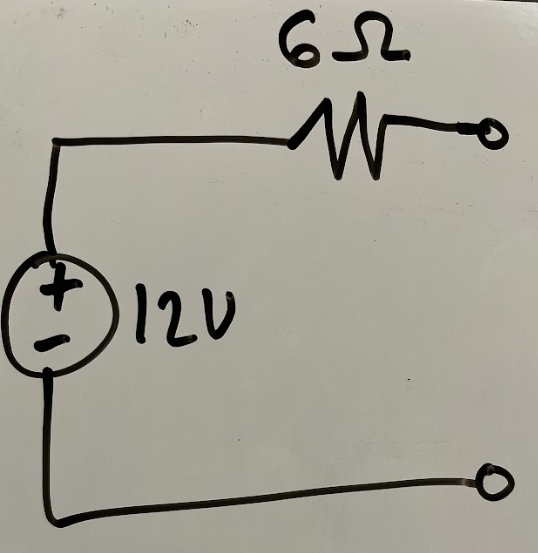 6Ω
+
12V
-